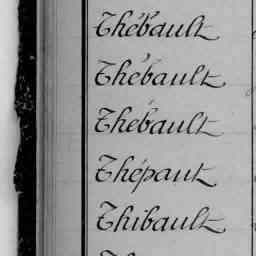 Thébault
Thébault
Thébault
Thépaut
Thibault